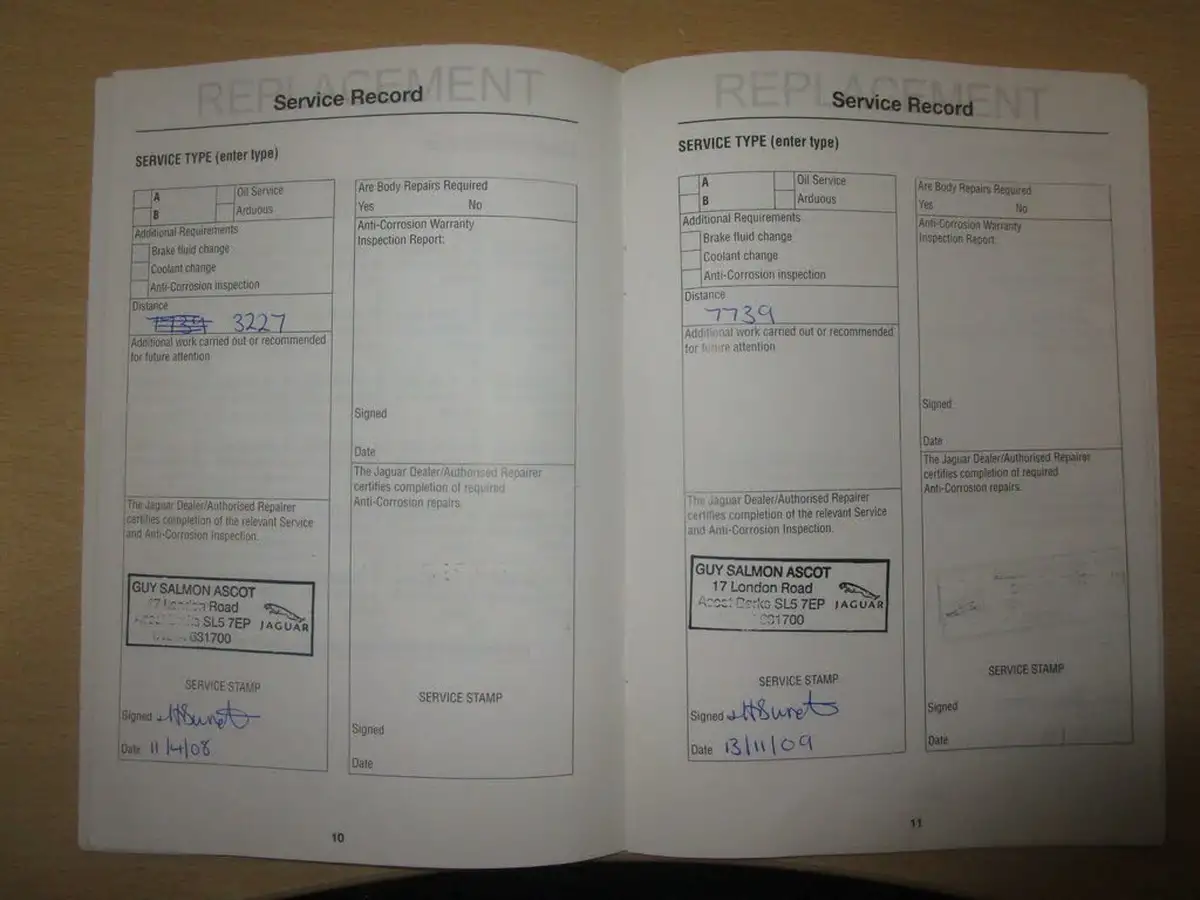 REPLACEMENT
Service Record
SERVICE TYPE (enter type)
A
Oil Service
B
Arduous
Additional Requirements
Brake fluid change
Coolant change
Anti-Corrosion inspection
Distance
7739 3227
Additional work carried out or recommended
for future attention
The Jaguar Dealer/Authorised Repairer
certifies completion of the relevant Service
and Anti-Corrosion Inspection.
GUY SALMON ASCOT
17 London Road
SL5 7EP
JAGUAR
631700
SERVICE STAMP
Signed
Date 11/4/08
Are Body Repairs Required
Yes No
Anti-Corrosion Warranty
Inspection Report:
Signed
Date
The Jaguar Dealer/Authorised Repairer
certifies completion of required
Anti-Corrosion repairs.
SERVICE STAMP
Signed
Date
10
REPLACEMENT
Service Record
SERVICE TYPE (enter type)
A
Oil Service
B
Arduous
Additional Requirements
Brake fluid change
Coolant change
Anti-Corrosion inspection
Distance
7739
Additional work carried out or recommended
for future attention
The Jaguar Dealer/Authorised Repairer
certifies completion of the relevant Service
and Anti-Corrosion Inspection.
GUY SALMON ASCOT
17 London Road
Ascot Berks SL5 7EP
JAGUAR
31700
SERVICE STAMP
Signed
Date 13/11/09
Are Body Repairs Required
Yes No
Anti-Corrosion Warranty
Inspection Report:
Signed
Date
The Jaguar Dealer/Authorised Repairer
certifies completion of required
Anti-Corrosion repairs.
SERVICE STAMP
Signed
Date
11